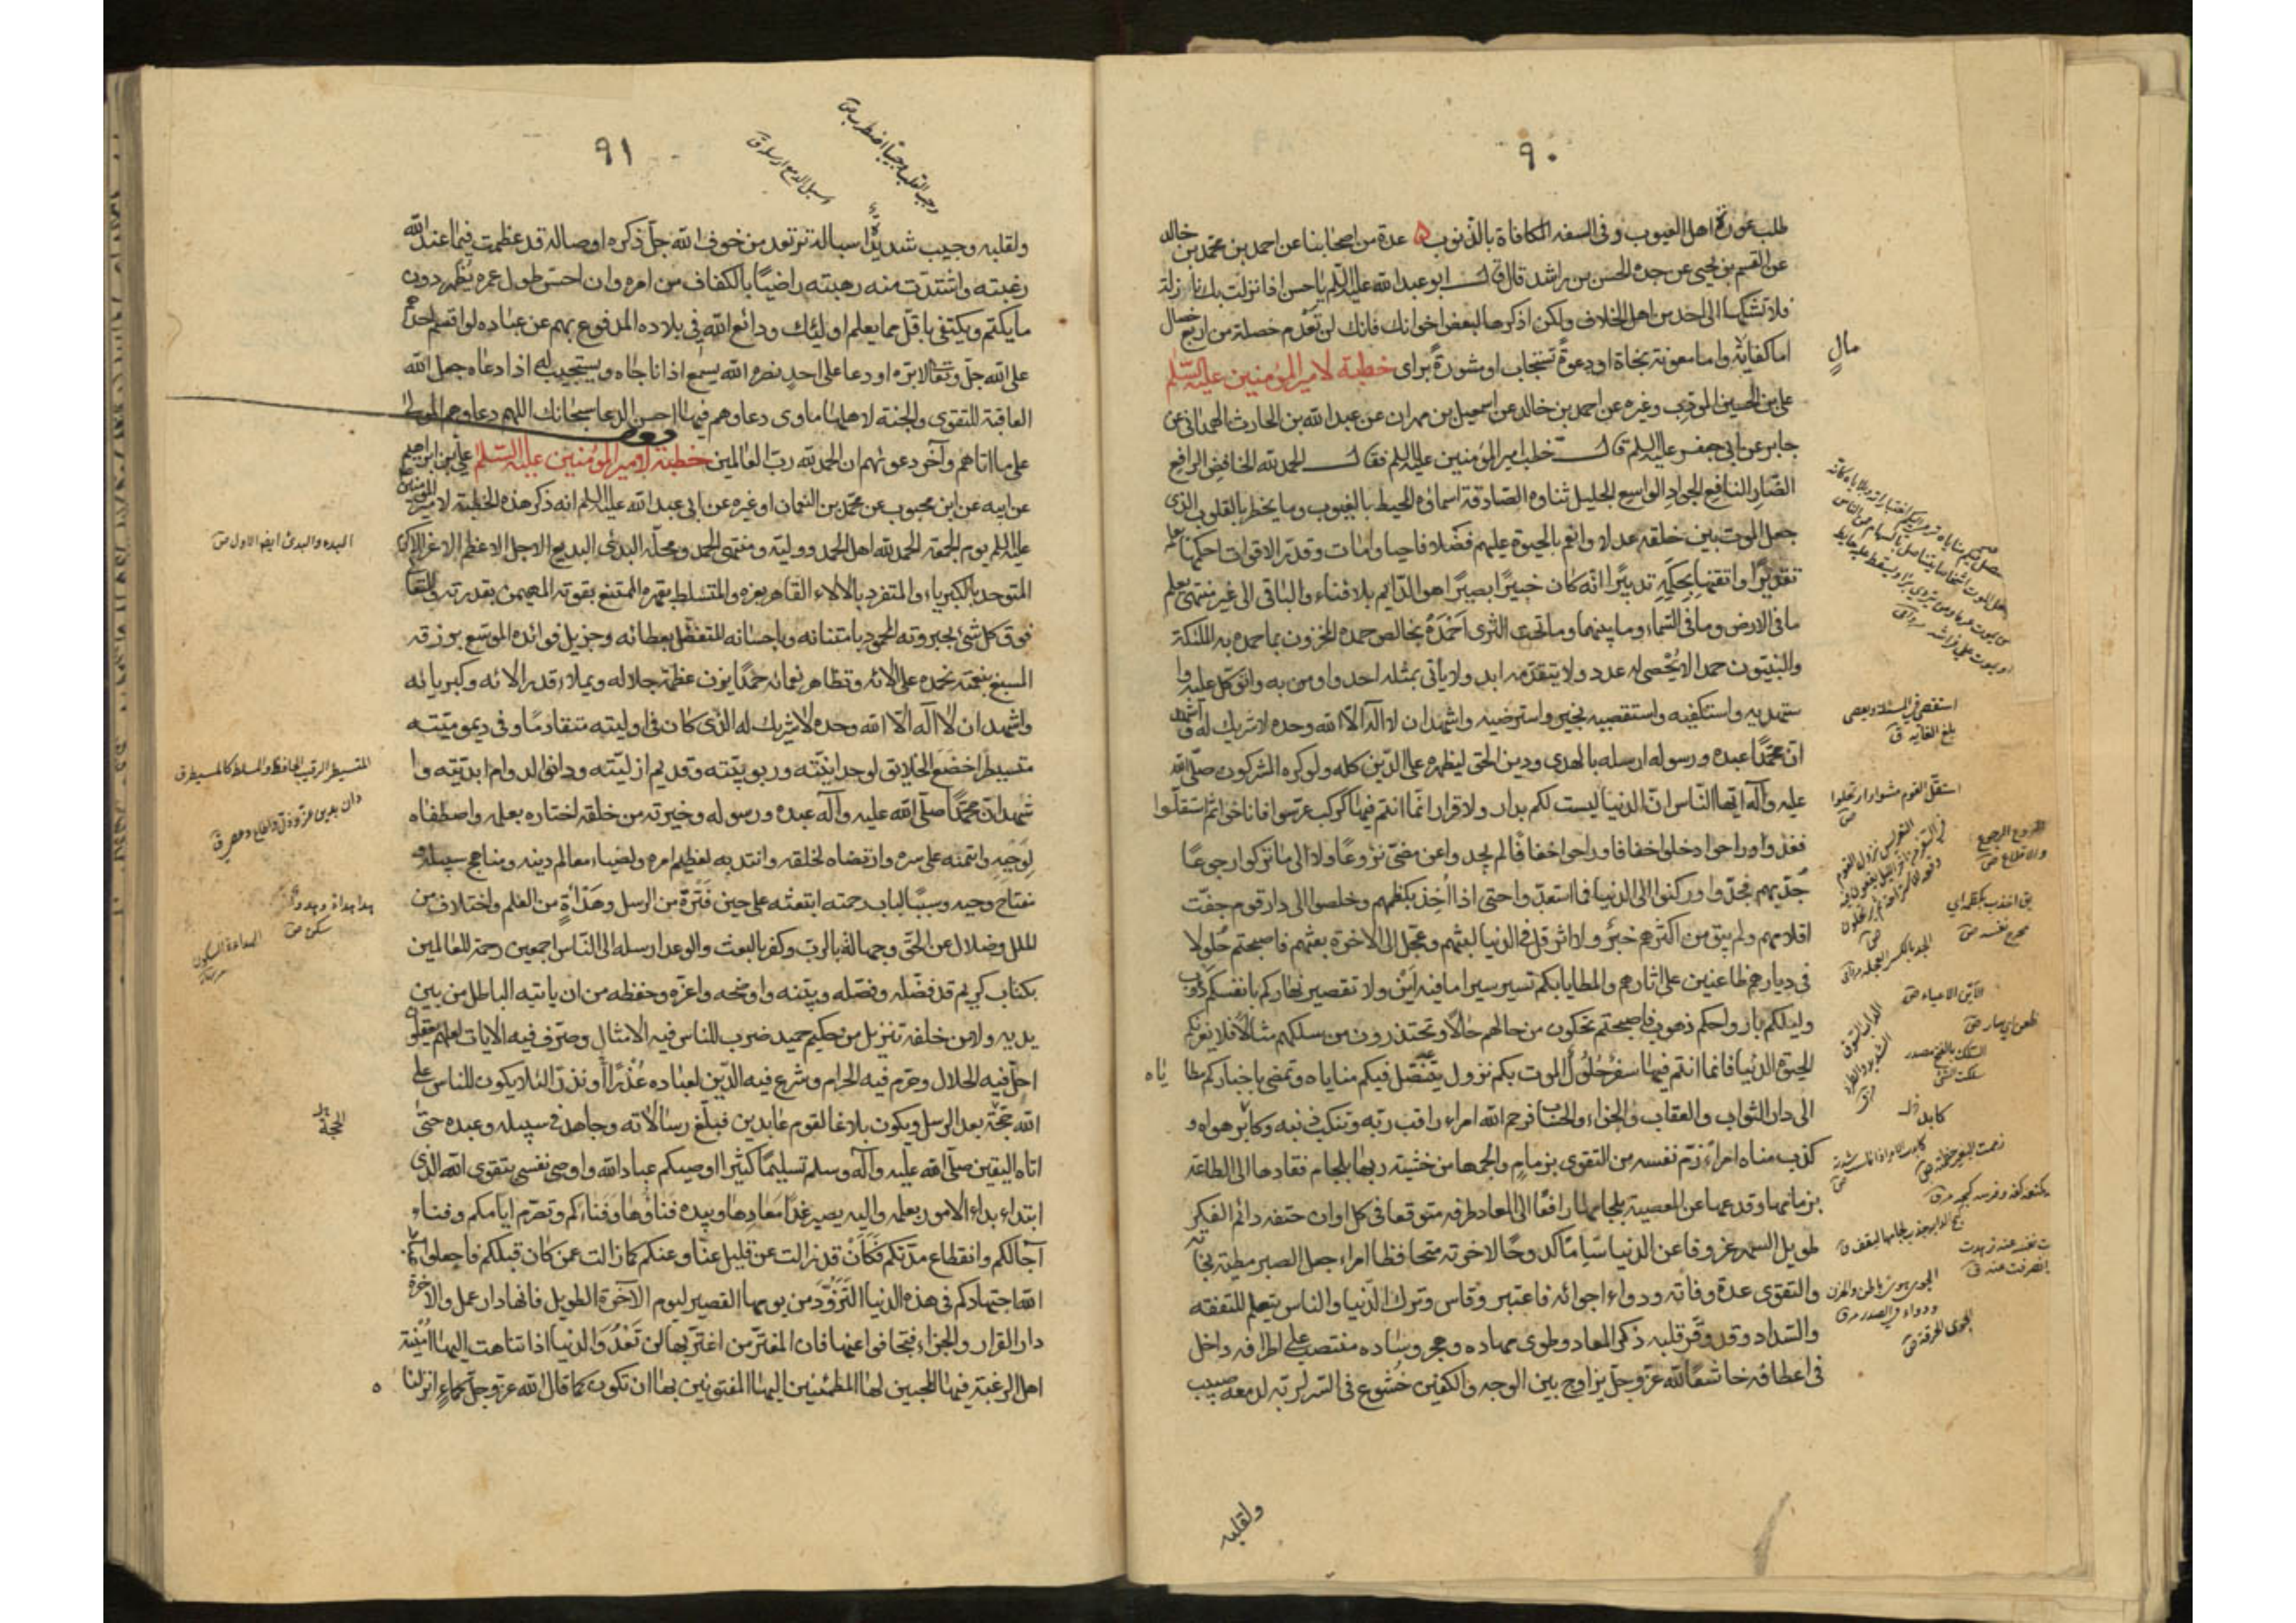 ٩٠
طلب عورة اهل العيوب وفى السفه المكافاة بالذنوب ه عدة من اصحابنا عن احمد بن محمد بن خالد
عن القسم بن يحيى عن جده الحسن بن راشد قال قال ابو عبد الله عليه السلم يا حسن اذا نزلت بك نازلة
فلا تشكها الى احد من اهل الخلاف ولكن اذكرها لبعض اخوانك فانك لن تعدم خصلة من اربع خصال
اما كفاية واما معونة بجاه او دعوة تستجاب او مشورة براى خطبة لامير المؤمنين عليه السلم
مال
على بن الحسين المؤدب وغيره عن احمد بن خالد عن اسمعيل بن مهران عن عبد الله بن الحارث الهمدانى عن
جابر عن ابى جعفر عليه السلم قال خطب امير المؤمنين عليه السلم فقال الحمد لله الخافض الرافع
الضار النافع الجواد الواسع الجليل ثناوه الصادقة اسماؤه المحيط بالغيوب وما يخطر بالقلوب الذى
جعل الموت بين خلقه عدلا وانعم بالحيوة عليهم فضلا فاحيا وامات وقدر الاقوات احكمها بعلمه
تقديرا واتقنها بحكمه تدبيرا انه كان خبيرا بصيرا هو الدائم بلا فناء والباقى الى غير منتهى يعلم
ما فى الارض وما فى السماء وما بينهما وما تحت الثرى احمده بخالص حمده المخزون بما حمده به الملئكة
والنبيون حمدا لا يحصى له عدد ولا يتقدمه ابد ولا ياتى بمثله احد واومن به واتوكل عليه وا
ستهديه واستكفيه واستقصيه بخير واسترضيه واشهد ان لا اله الا الله وحده لا شريك له واشهد
ان محمدا عبده ورسوله ارسله بالهدى ودين الحق ليظهره على الدين كله ولو كره المشركون صلى الله
عليه وآله ايها الناس ان الدنيا ليست لكم بدار ولا قرار انما انتم فيها كركب عرسوا فاناخوا ثم استقلوا
فغدوا وراحوا دخلوا خفافا وراحوا خفافا لم يجدوا عن مضى نزوعا ولا الى ما تركوا رجوعا
جد بهم فجدوا وركنوا الى الدنيا فما استعدوا حتى اذا اخذ بكظمهم وخلصوا الى دار قوم جفت
اقلامهم ولم يبق من اكثرهم خبر ولا اثر قل فى الدنيا لبثهم وعجل الى الاخرة بعثهم فاصبحتم حلولا
فى ديارهم ظاعنين على اثارهم والمطايا بكم تسير سيرا ما فيه اين ولا تفتير نهاركم بانفسكم دؤوب
وليلكم بارواحكم ذهوب فاصبحتم تحكون من حالهم حالا وتحتذون من سلكهم مثالا فلا تغرنكم
الحيوة الدنيا فانما انتم فيها سفر حلول الموت بكم نزول ينتضل فيكم مناياه وتمضى باخباركم مطاياه
الى دار الثواب والعقاب والجزاء والحساب فرحم الله امراء راقب ربه وتنكب ذنبه وكابر هواه و
كذب مناه امراء زم نفسه من التقوى بزمام والجمها من خشية ربها بلجام فقادها الى الطاعة
بزمامها وقدعها عن المعصية بلجامها رافعا الى المعاد طرفه متوقعا فى كل اوان حتفه دائم الفكر
طويل السهر عزوفا عن الدنيا سأما كدوحا لاخرته متحافظا امراء جعل الصبر مطية نجاته
والتقوى عدة وفاته ودواء اجوائه فاعتبر وقاس وترك الدنيا والناس يتعلم للتفقه
والسداد وقد وقر قلبه ذكر المعاد وطوى مهاده وهجر وساده منتصب على اطرافه داخل
فى اعطافه خاشعا لله عز وجل يراوح بين الوجه والكفين خشوع فى السر لربه لدمعه صبيب
ولقلبه
استقصى فى المسئلة وتقصى
بلغ الغاية ق
استقل القوم مضوا وارتحلوا
ص
الاين الاعياء ص
ظعن اى سار ص
٩١
وجب القلب وجيبا اضطرب ص
اسبل الدمع ارسله ق
ولقلبه وجيب شديدة اسباله ترتعد من خوف الله جل ذكره اوصاله قد عظمت فيما عند الله
رغبته واشتدت منه رهبته راضيا بالكفاف من امره وان احسن طول عمره يظهر دون
ما يكتم ويكتفى باقل مما يعلم اولئك ودائع الله فى بلاده المدفوع بهم عن عباده لو اقسم احدهم
على الله جل وتعالى لابره او دعا على احد نصره الله يسمع اذا ناجاه ويستجيب له اذا دعاه جعل الله
العاقبة للتقوى والجنة لاهلها ماوى دعاوهم فيها احسن الدعا سبحانك اللهم دعاوهم المولى
على ما اتاهم وآخر دعويهم ان الحمد لله رب العالمين خطبة لامير المؤمنين عليه السلم على بن ابراهيم
عن ابيه عن ابن محبوب عن محمد بن النعمان او غيره عن ابى عبد الله عليه السلم انه ذكر هذه الخطبة لامير المؤمنين
عليه السلم يوم الجمعة الحمد لله اهل الحمد ووليه ومنتهى الحمد ومحله البدئ البديع الاجل الاعظم الاعز الاكرم
المتوحد بالكبرياء والمتفرد بالآلاء القاهر بعزه والمتسلط بقهره الممتنع بقوته المهيمن بقدرته والمتعالى
فوق كل شئ بجبروته المحمود بامتنانه وباحسانه المتفضل بعطائه وجزيل فوائده الموسع برزقه
المسبغ بنعمته نحمده على الائه وتظاهر نعمائه حمدا يزن عظمة جلاله ويملاء قدر الائه وكبريائه
واشهد ان لا اله الا الله وحده لا شريك له الذى كان فى اوليته متقادما وفى ديموميته
متسيطرا خضع الخلايق لوحدانيته وربوبيته وقديم ازليته ودانوا لدوام ابديته وا
شهد ان محمدا صلى الله عليه وآله عبده ورسوله وخيرته من خلقه اختاره بعلمه واصطفاه
لوحيه وائتمنه على سره وارتضاه لخلقه وانتدبه لعظيم امره ولضياء معالم دينه ومناهج سبيله و
مفتاح وحيه وسببا لباب رحمته ابتعثه على حين فترة من الرسل وهدأة من العلم واختلاف من
الملل وضلال عن الحق وجهالة بالرب وكفر بالبعث والوعد ارسله الى الناس اجمعين رحمة للعالمين
بكتاب كريم قد فضله وفصله وبينه واوضحه واعزه وحفظه من ان ياتيه الباطل من بين
يديه ولا من خلفه تنزيل من حكيم حميد ضرب للناس فيه الامثال وصرف فيه الايات لعلهم يعقلون
احل فيه الحلال وحرم فيه الحرام وشرع فيه الدين لعباده عذرا او نذرا لئلا يكون للناس على
الله حجة بعد الرسل ويكون بلاغا لقوم عابدين فبلغ رسالاته وجاهد فى سبيله وعبده حتى
اتاه اليقين صلى الله عليه وآله وسلم تسليما كثيرا اوصيكم عباد الله واوصى نفسى بتقوى الله الذى
ابتداء بداء الامور بعلمه واليه يصير غدا معادها وبيده فناؤها وفناءكم وتصرم ايامكم وفناء
آجالكم وانقطاع مدتكم فكأن قد زالت عن قليل عنا وعنكم كما زالت عمن كان قبلكم فاجعلوا عباد
الله اجتهادكم فى هذه الدنيا التزود من يومها القصير ليوم الآخرة الطويل فانها دار عمل والاخرة
دار القرار والجزاء فتجافوا عنها فان المغتر من اغتر بها لن تعدو الدنيا اذا تناهت اليها امنية
اهل الرغبة فيها المحبين لها المطمئنين اليها المفتونين بها ان تكون كما قال الله عز وجل كماء انزلناه
البدء والبدئ ايضا الاول ص
المتسيطر الرقيب الحافظ والمسلط كالمسيطر ق
هدا هداة وهدوءا
سكن ص
الهداءة السكون
الحجة